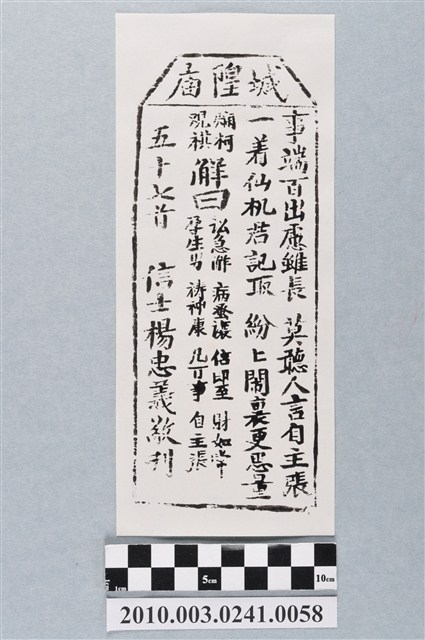 城隍庙
事端百出慮雖長 莫聽人言自主張
一着仙机君記取 紛々鬧裏更思量
爛柯
观棋
解曰
訟急解 病蚤禳 信即至 財如常
孕生男 祷神康 凡百事 自主張
五十七首 信士楊忠義敬刊
1cm 5cm 10cm
2010.003.0241.0058